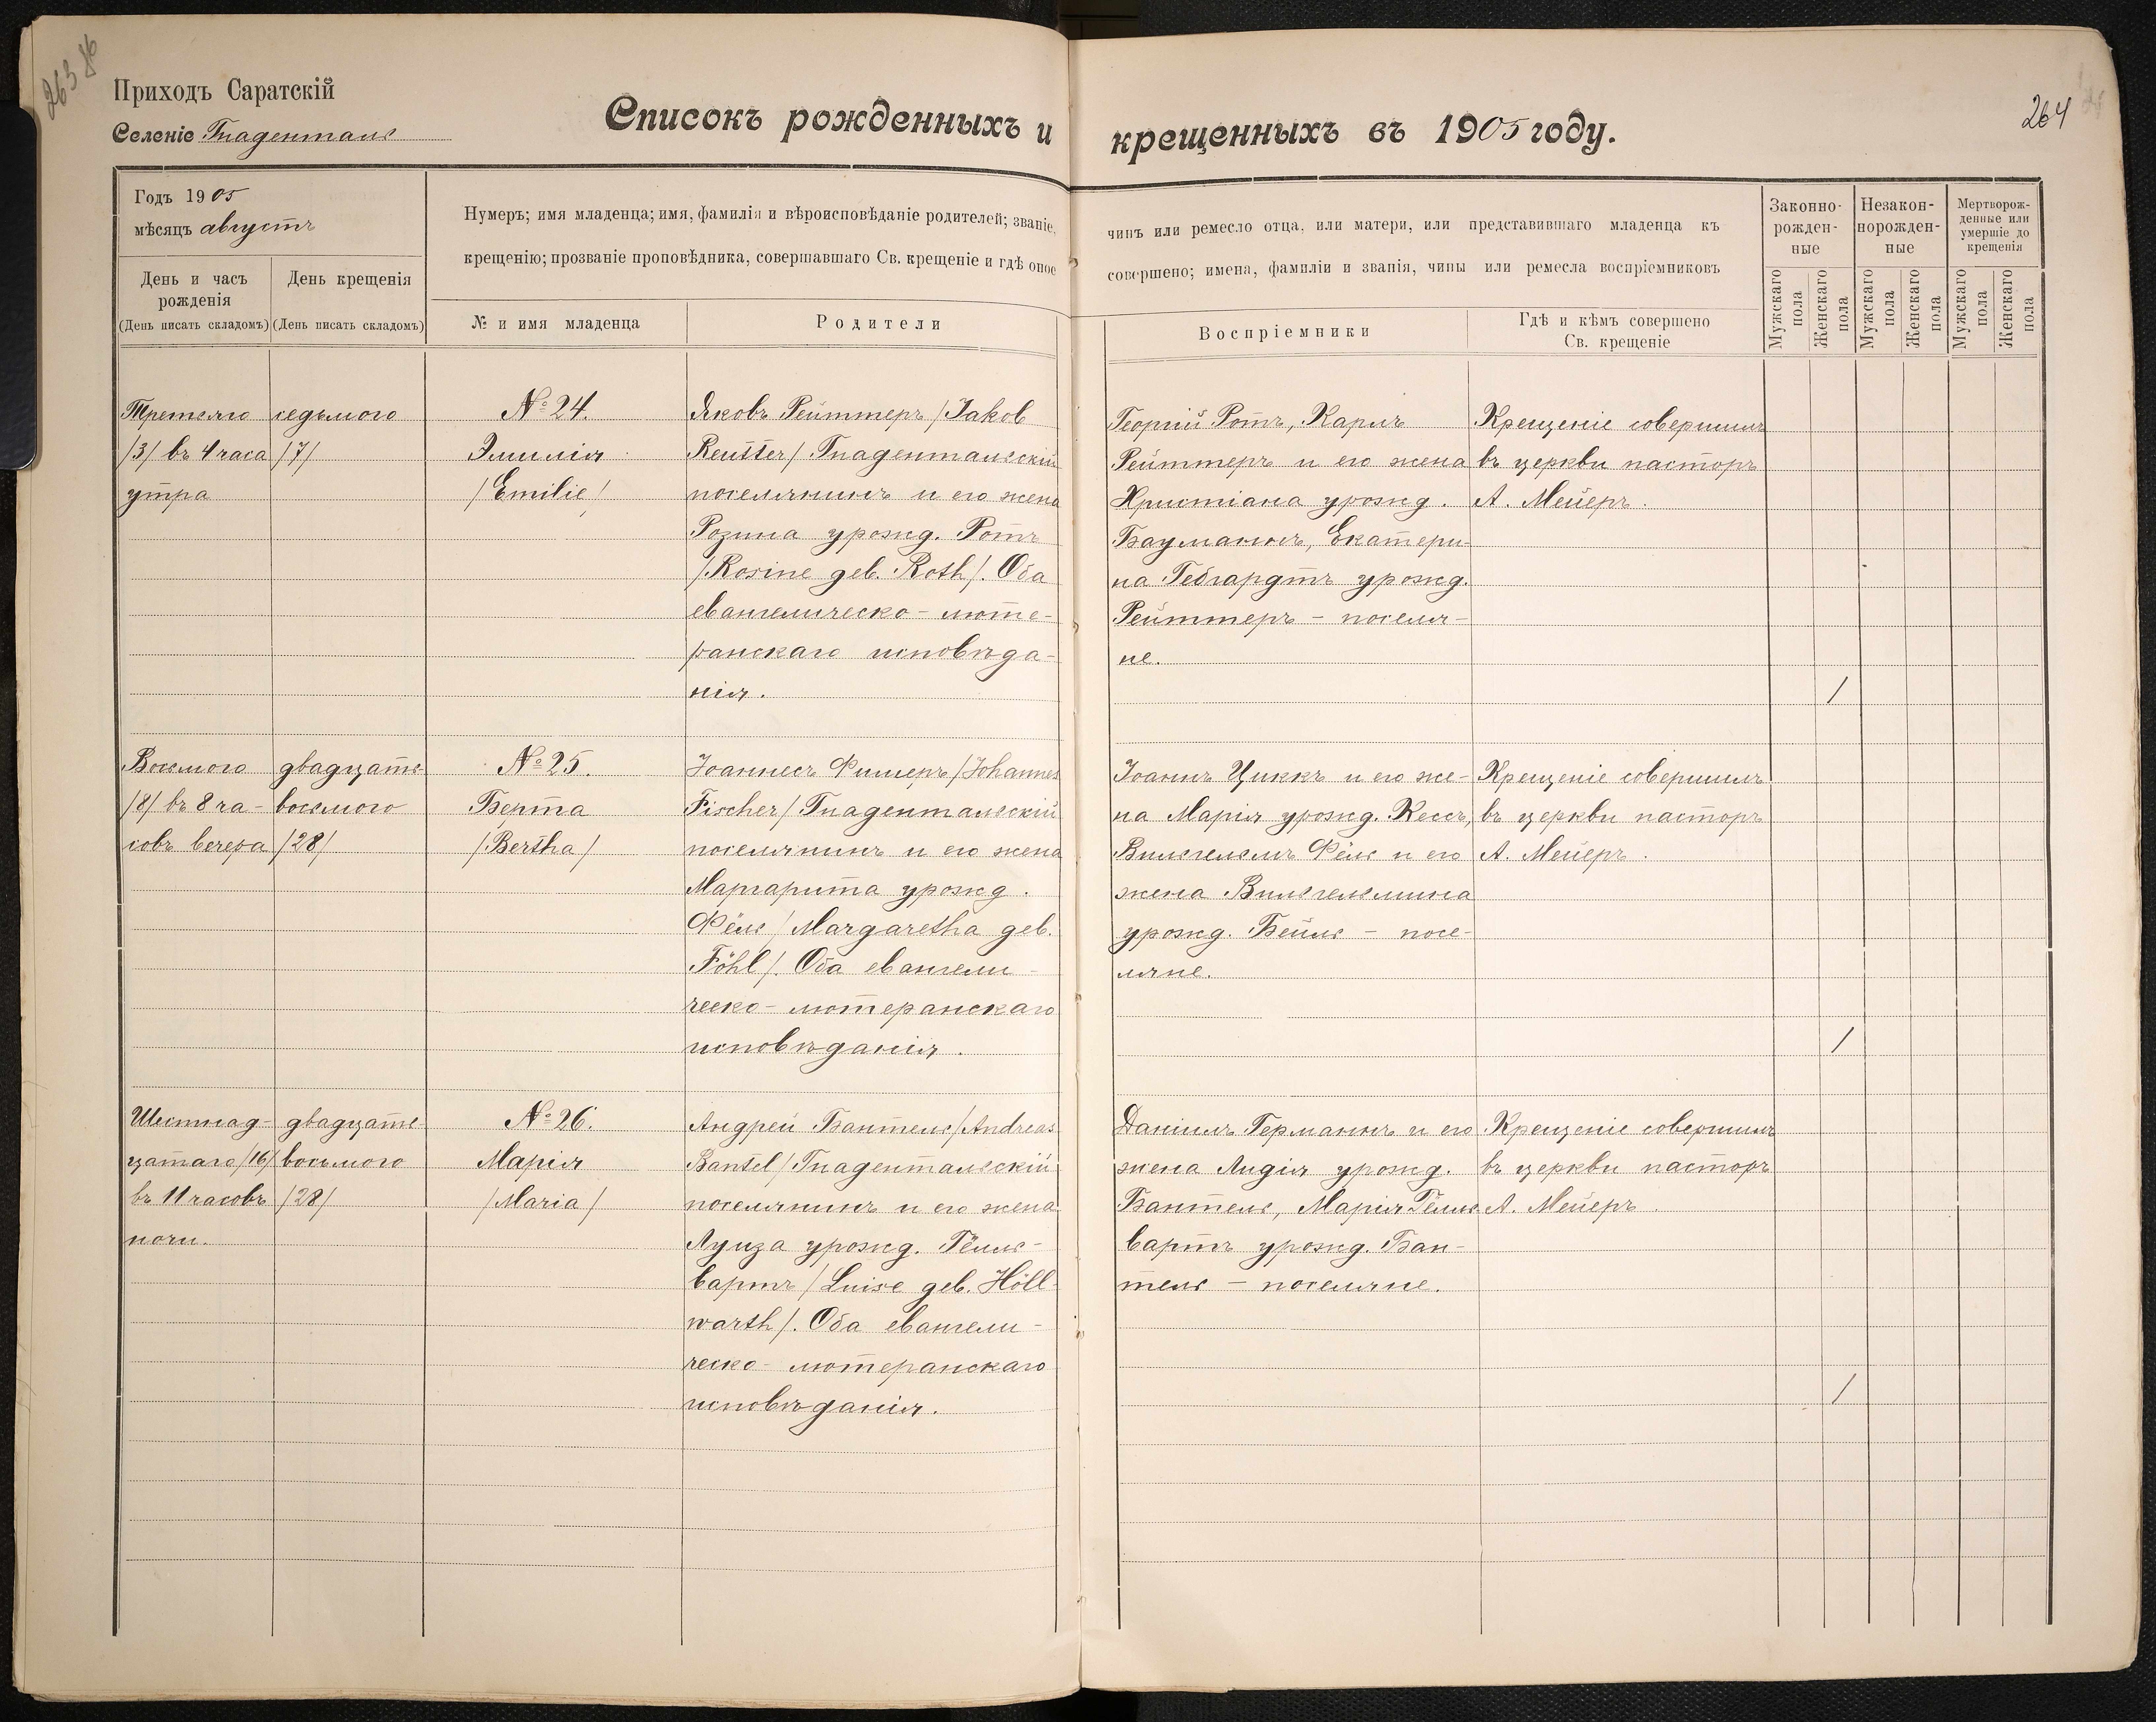 263
Приходъ Саратскій
Селеніе Гнаденталь
Списокъ рожденныхъ и крещенныхъ въ 1905 году.
264
Годъ 1905
мѣсяцъ августъ
Нумеръ; имя младенца; имя, фамилія и вѣроисповѣданіе родителей; званіе,
крещенію; прозваніе проповѣдника, совершавшаго Св. крещеніе и гдѣ оное
чинъ или ремесло отца, или матери, или представившаго младенца къ
совершено; имена, фамиліи и званія, чины или ремесла воспріемниковъ
День и часъ
рожденія
(День писать складомъ)
День крещенія
(День писать складомъ)
№ и имя младенца
Родители
Воспріемники
Гдѣ и кѣмъ совершено
Св. крещеніе
Законно-
рожден-
ные
Незакон-
норожден-
ные
Мертворож-
денные или
умершіе до
крещенія
Мужскаго
пола
Женскаго
пола
Мужскаго
пола
Женскаго
пола
Мужскаго
пола
Женскаго
пола
Третьяго
/3/ въ 4 часа
утра
седьмого
/7/
№ 24.
Эмилія
/Emilie/
Яковъ Рейттеръ /Jakob
Reutter/ Гнадентальскій
поселянинъ и его жена
Розина урожд. Ротъ
/Rosine geb. Roth/. Оба
евангелическо-люте-
ранскаго исповѣда-
нія.
Георгій Ротъ, Карлъ
Рейттеръ и его жена
Христіана урожд.
Бауманнъ, Екатери-
на Гебгардтъ урожд.
Рейттеръ – поселя-
не.
Крещеніе совершилъ
въ церкви пасторъ
А. Мейеръ.
/
Восьмого
/8/ въ 8 ча-
совъ вечера
двадцать
восьмого
/28/
№ 25.
Берта
/Bertha/
Іоаннесъ Фишеръ /Johannes
Fischer/ Гнадентальскій
поселянинъ и его жена
Маргарита урожд.
Фёль /Margaretha geb.
Föhl/. Оба евангели-
ческо-лютеранскаго
исповѣданія.
Іоаннъ Циккъ и его же-
на Марія урожд. Кессъ,
Вильгельмъ Фёль и его
жена Вильгельмина
урожд. Бейль – посе-
ляне.
Крещеніе совершилъ
въ церкви пасторъ
А. Мейеръ.
/
Шестнад-
цатаго /16/
въ 11 часовъ
ночи.
двадцать
восьмого
/28/
№ 26.
Марія
/Maria/
Андрей Бантель /Andreas
Bantel/ Гнадентальскій
поселянинъ и его жена
Луиза урожд. Гёлль-
вартъ /Luise geb. Höll-
warth/. Оба евангели-
ческо-лютеранскаго
исповѣданія.
Даніилъ Германнъ и его
жена Лидія урожд.
Бантель, Марія Гёлль-
вартъ урожд. Бан-
тель – поселяне.
Крещеніе совершилъ
въ церкви пасторъ
А. Мейеръ.
/